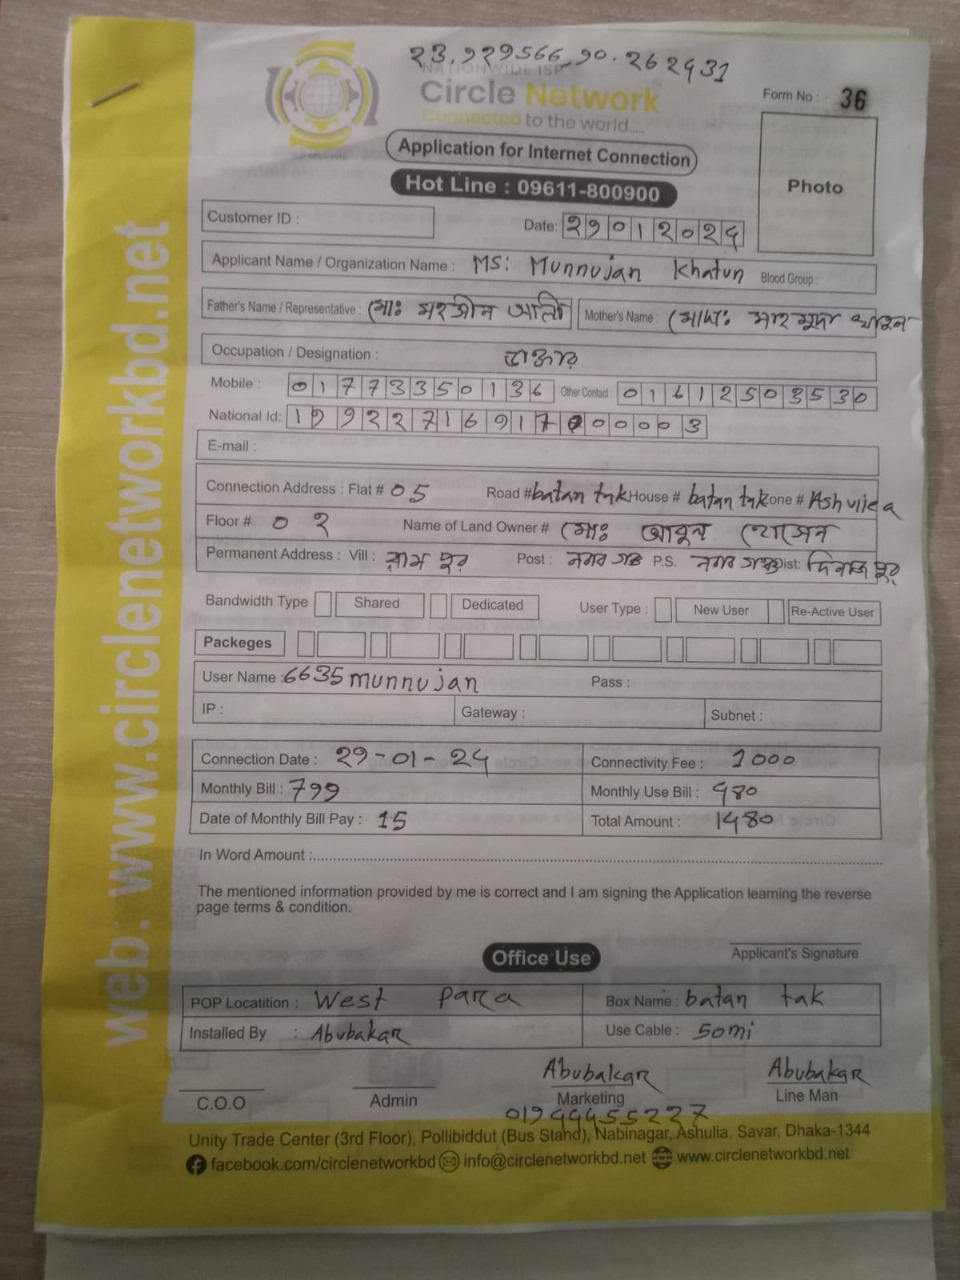 23.929566,90.262431
NATIONWIDE ISP
Circle Network
Connected to the world.....
Form No : - 36
Application for Internet Connection
Photo
Hot Line : 09611-800900
Customer ID :
Date: 29012024
Applicant Name / Organization Name : MS: Munnujan Khatun Blood Group :
Father's Name / Representative : মোঃ মহসীন আলী Mother's Name : মোছাঃ মাহমুদা খাতুন
Occupation / Designation :
Mobile : 01773350136 Other Contact : 01612503530
National Id: 19922716917000003
E-mail :
Connection Address : Flat # 05 Road # batan tak House # batan tak Zone # Ashuliea
Floor # 02 Name of Land Owner # মোঃ আবুল হোসেন
Permanent Address : Vill : রাম পুর Post : P.S. Dist: দিনাজ পুর
Bandwidth Type Shared Dedicated User Type : New User Re-Active User
Packeges
User Name : 6635munnujan Pass :
IP : Gateway : Subnet :
Connection Date : 29-01-24 Connectivity Fee : 1000
Monthly Bill : 799 Monthly Use Bill : 480
Date of Monthly Bill Pay : 15 Total Amount : 1480
In Word Amount :
The mentioned information provided by me is correct and I am signing the Application learning the reverse
page terms & condition.
Applicant's Signature
Office Use
POP Locatition : West Para Box Name : batan tak
Installed By : Abubakar Use Cable : 50mi
Abubakar Abubakar
C.O.O Admin Marketing Line Man
01944455227
Unity Trade Center (3rd Floor), Pollibiddut (Bus Stand), Nabinagar, Ashulia, Savar, Dhaka-1344
facebook.com/circlenetworkbd info@circlenetworkbd.net www.circlenetworkbd.net
web: www.circlenetworkbd.net